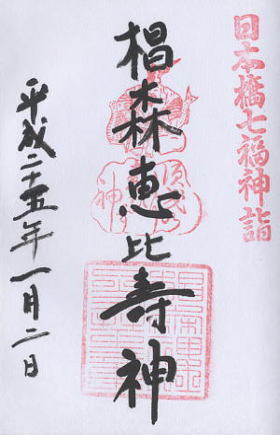 日本橋七福神詣
椙森恵比寿神
平成二十五年一月二日